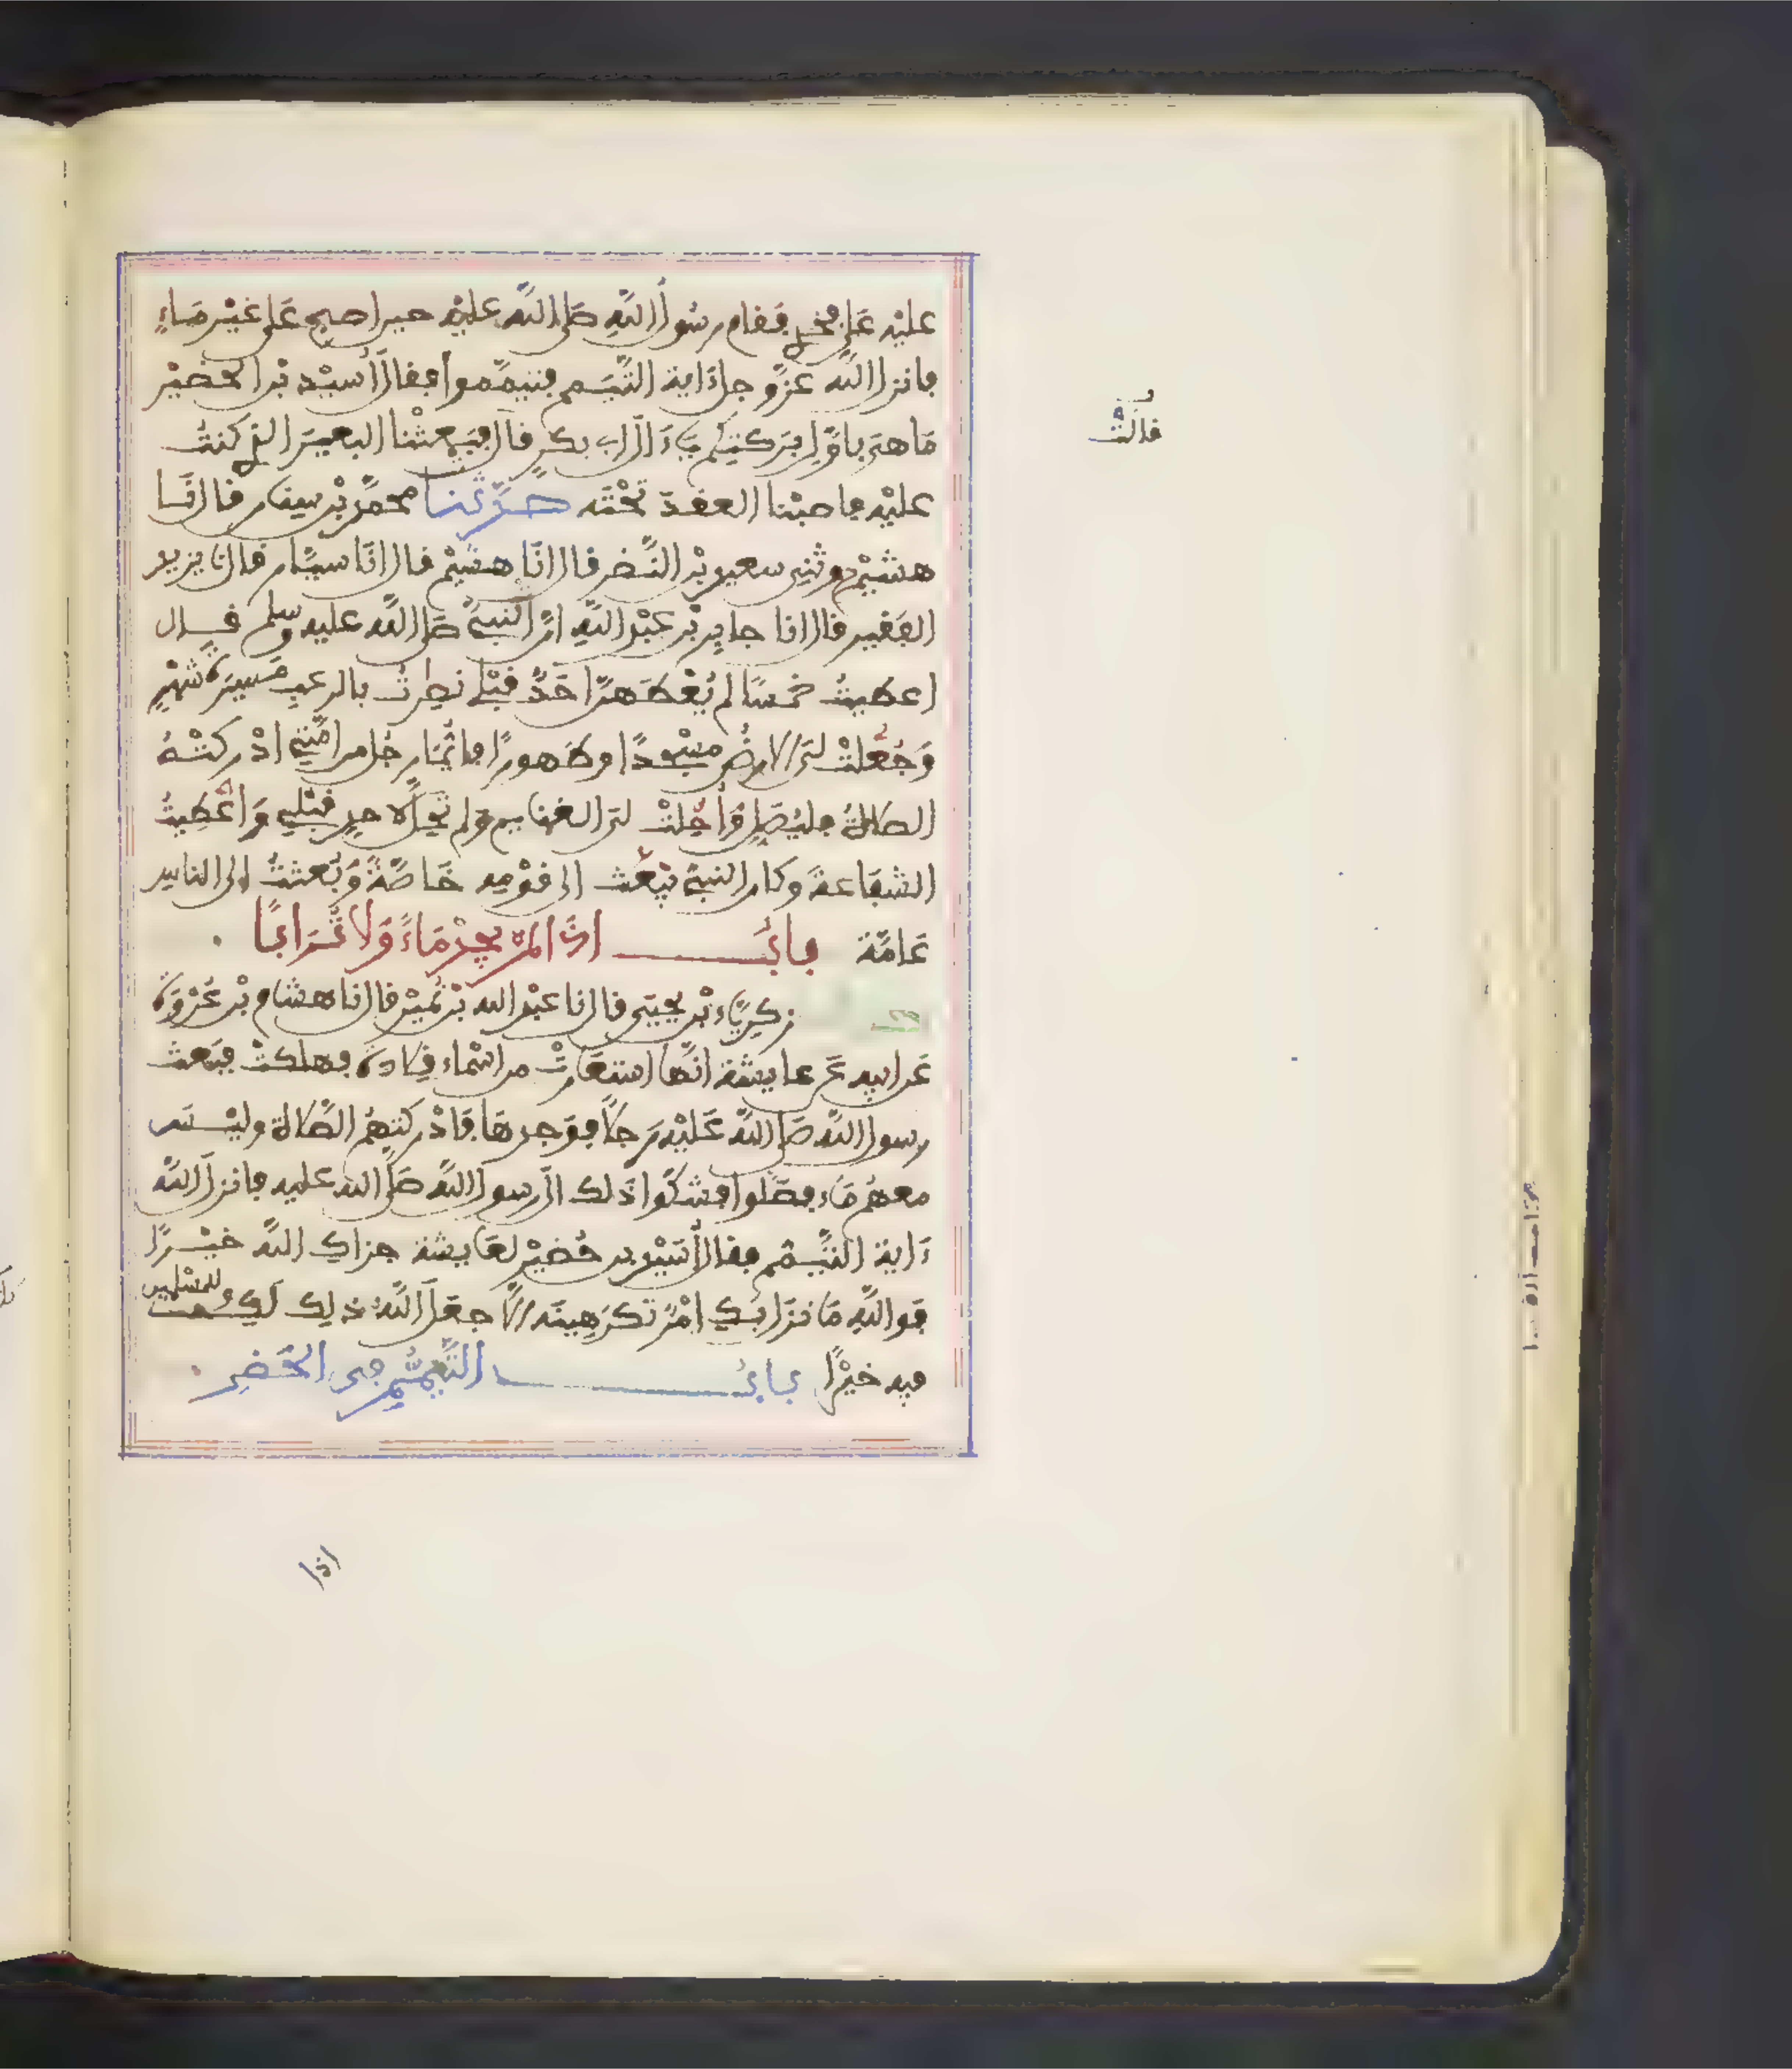 عليْه عَلى فخذي فقام رسُولُ اللهِ صَلى اللهُ عليْه حين اصبح عَلى غيْر مَاءٍ
فانزل اللهُ عزَّ وجل ءَاية التَّيَمم فتيمَّموا فقال أُسيْد بْن الحضَيْر
مَا هيَ باوَّلِ بَركتِكم يَاءَالَ ابي بكرٍ قال فبَعثْنا البعيرَ الذي كنتُ
عليْه فاصبْنا العقدَ تحْتَه حدَّثنا محمدُ بْن سنان قال انَا
هشيْم وثني سعيد بْن النَّضر قال انَا هشيْم قال انَا سيَّار قال نا يزيد
الفَقير قال انا جابِر بْن عبْد اللهِ انَّ النبيَّ صَلى الله عليه وسلم قال
اعطيتُ خمسًا لم يُعْطَهنَّ احَدٌ قبْلي نصِرتُ بالرعبِ مَسيرَة شهْرٍ
وَجُعلتْ ليَ الارضُ مسْجدًا وطَهورًا فايُّمَا رجُل من امَّتي ادْركتْهُ
الصلاةُ فليُصَلِ وَأُحِلتْ ليَ الغنايم وَلم تحِلَّ لاحدٍ قبْلي وَاعْطِيتُ
الشفَاعةَ وكان النبيُّ يُبْعَث الى قوْمِه خَاصَّةً وَبُعثتُ الى الناس
عَامَّة بابُ اذَا لم يجِدْ مَاءً وَلا تُرَابًا
زكريَّاء بْن يحيَى قال نا عبْد الله بْن نُميْر قال نا هشام بْن عُرْوَة
عَن ابيه عَن عايشة انَّها استعَارتْ من اسْماء قِلادَةً فهلكتْ فبَعث
رسول اللهِ صَلى اللهُ عَليْه رَجلًا فوَجدهَا فَادْركتهُم الصَّلاة وليْسَ
معهُم مَاء فصَلَّوا فشكَوْا ذلك الى رسول الله صَلى الله عليه فانزل اللهُ
ءَاية التيَمُّم فقال أُسَيْد بن حُضيْر لعَايشة جزاكِ اللهُ خيْرًا
فوالله مَا نزَل بكِ امْرٌ تكرَهِينَه الَّا جعَلَ اللهُ ذلكِ لَكِ وللمسْلمين
فيه خيْرًا بابُ التَّيمُّم في الحَضرِ
قالتْ
اذا